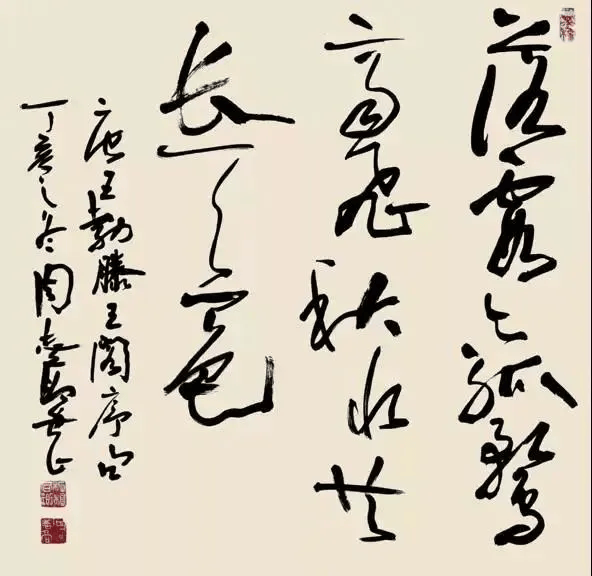 落霞与孤鹜
齐飞秋水共
长天一色
唐王勃滕王阁序句
丁亥之冬周